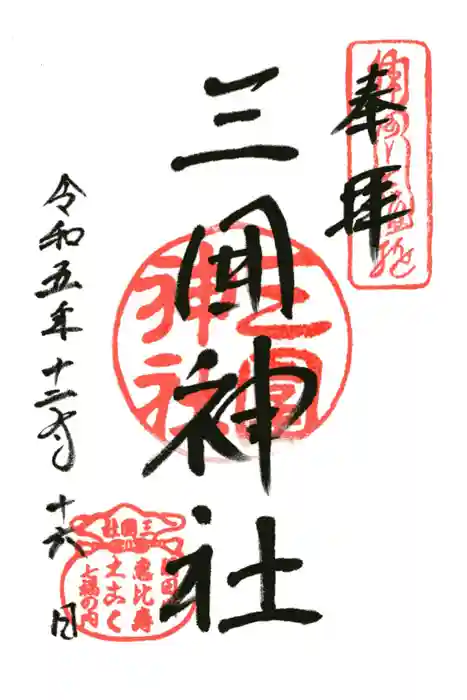 奉拝
三囲神社
令和五年十二月十六日
三囲神社
三囲社
恵比寿
大こく
七福の内